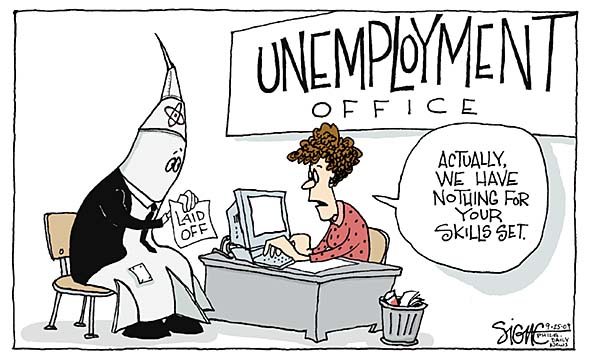 UNEMPLOYMENT
OFFICE
ACTUALLY,
WE HAVE
NOTHING FOR
YOUR
SKILLS SET.
LAID
OFF
SIGNE
9-25-09
PHILA.
DAILY
NEWS